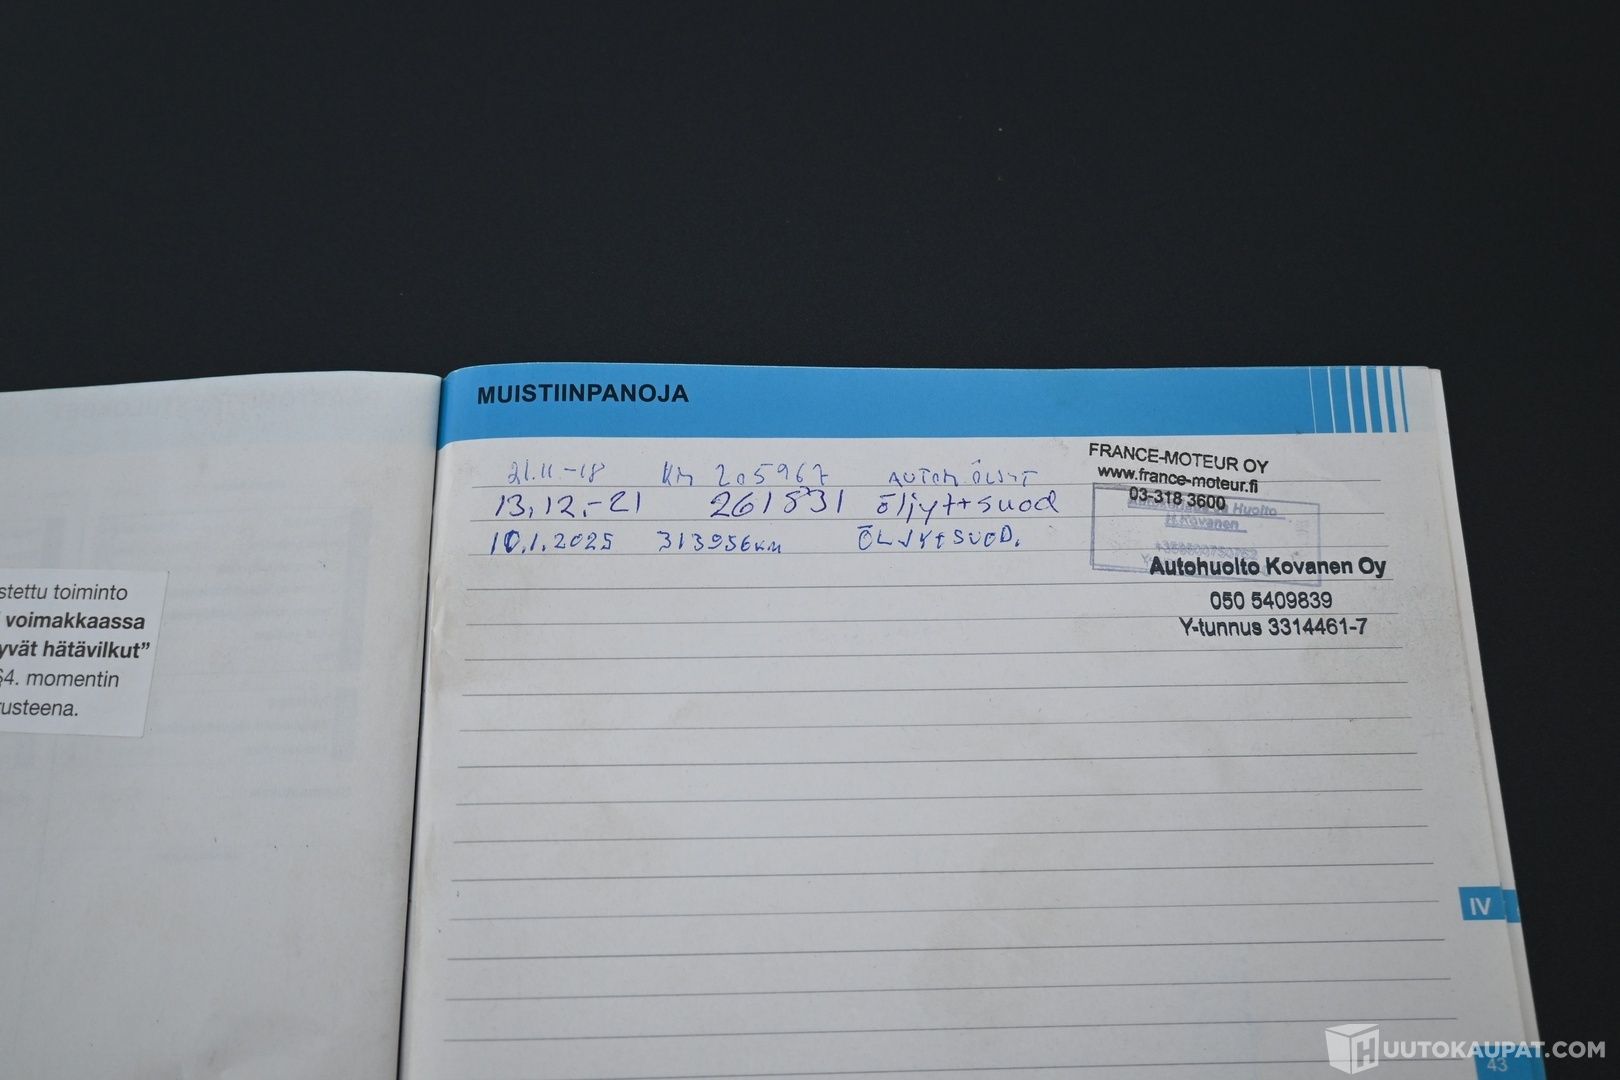 stettu toiminto
voimakkaassa
yvät hätävilkut”
§4. momentin
usteena.
MUISTIINPANOJA
21.11-18 KM 205967 AUTOM.ÖLJYT
13.12.-21 261831 öljyt+suod
10.1.2025 313956km ÖLJYT+SUOD.
FRANCE-MOTEUR OY
www.france-moteur.fi
03-318 3600
Huolto
H.Kovanen
Autohuolto Kovanen Oy
050 5409839
Y-tunnus 3314461-7
IV
43
HUUTOKAUPAT.COM